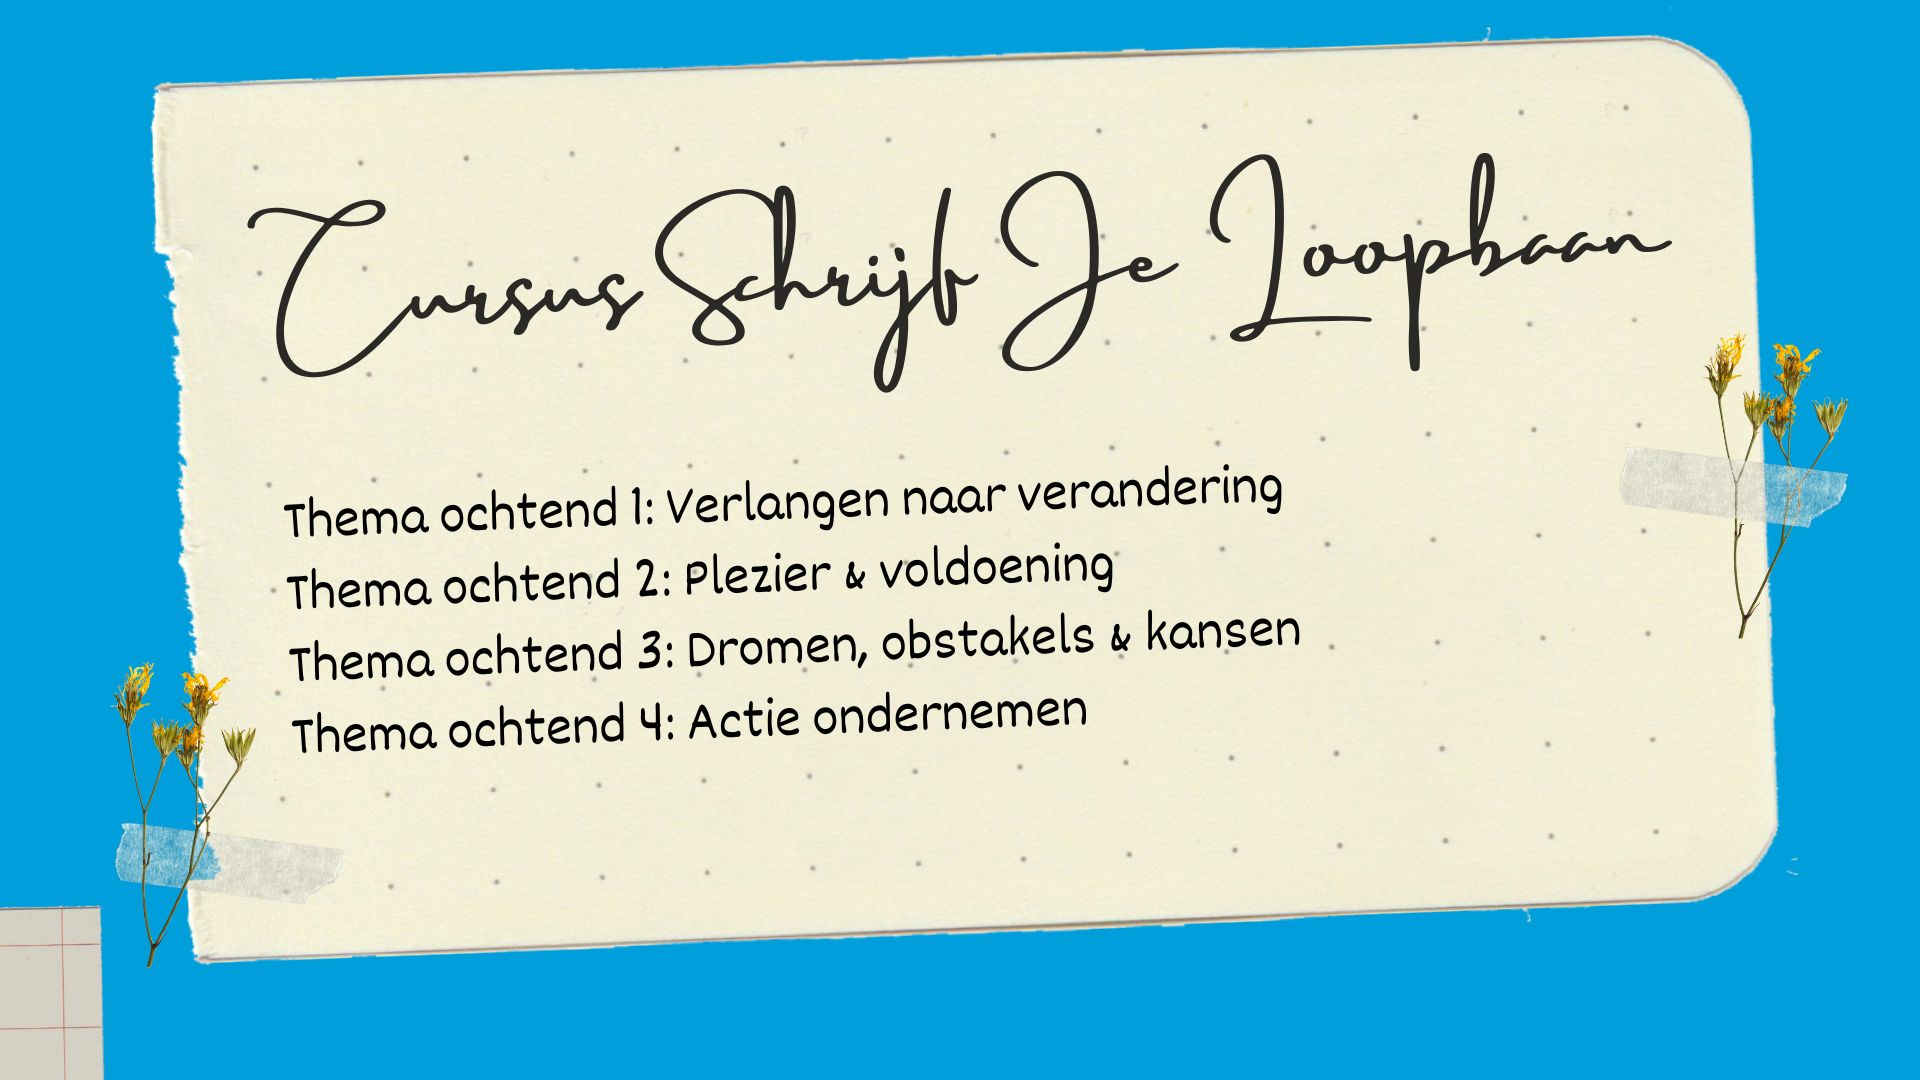 Cursus Schrijf Je Loopbaan
Thema ochtend 1: Verlangen naar verandering
Thema ochtend 2: Plezier & voldoening
Thema ochtend 3: Dromen, obstakels & kansen
Thema ochtend 4: Actie ondernemen